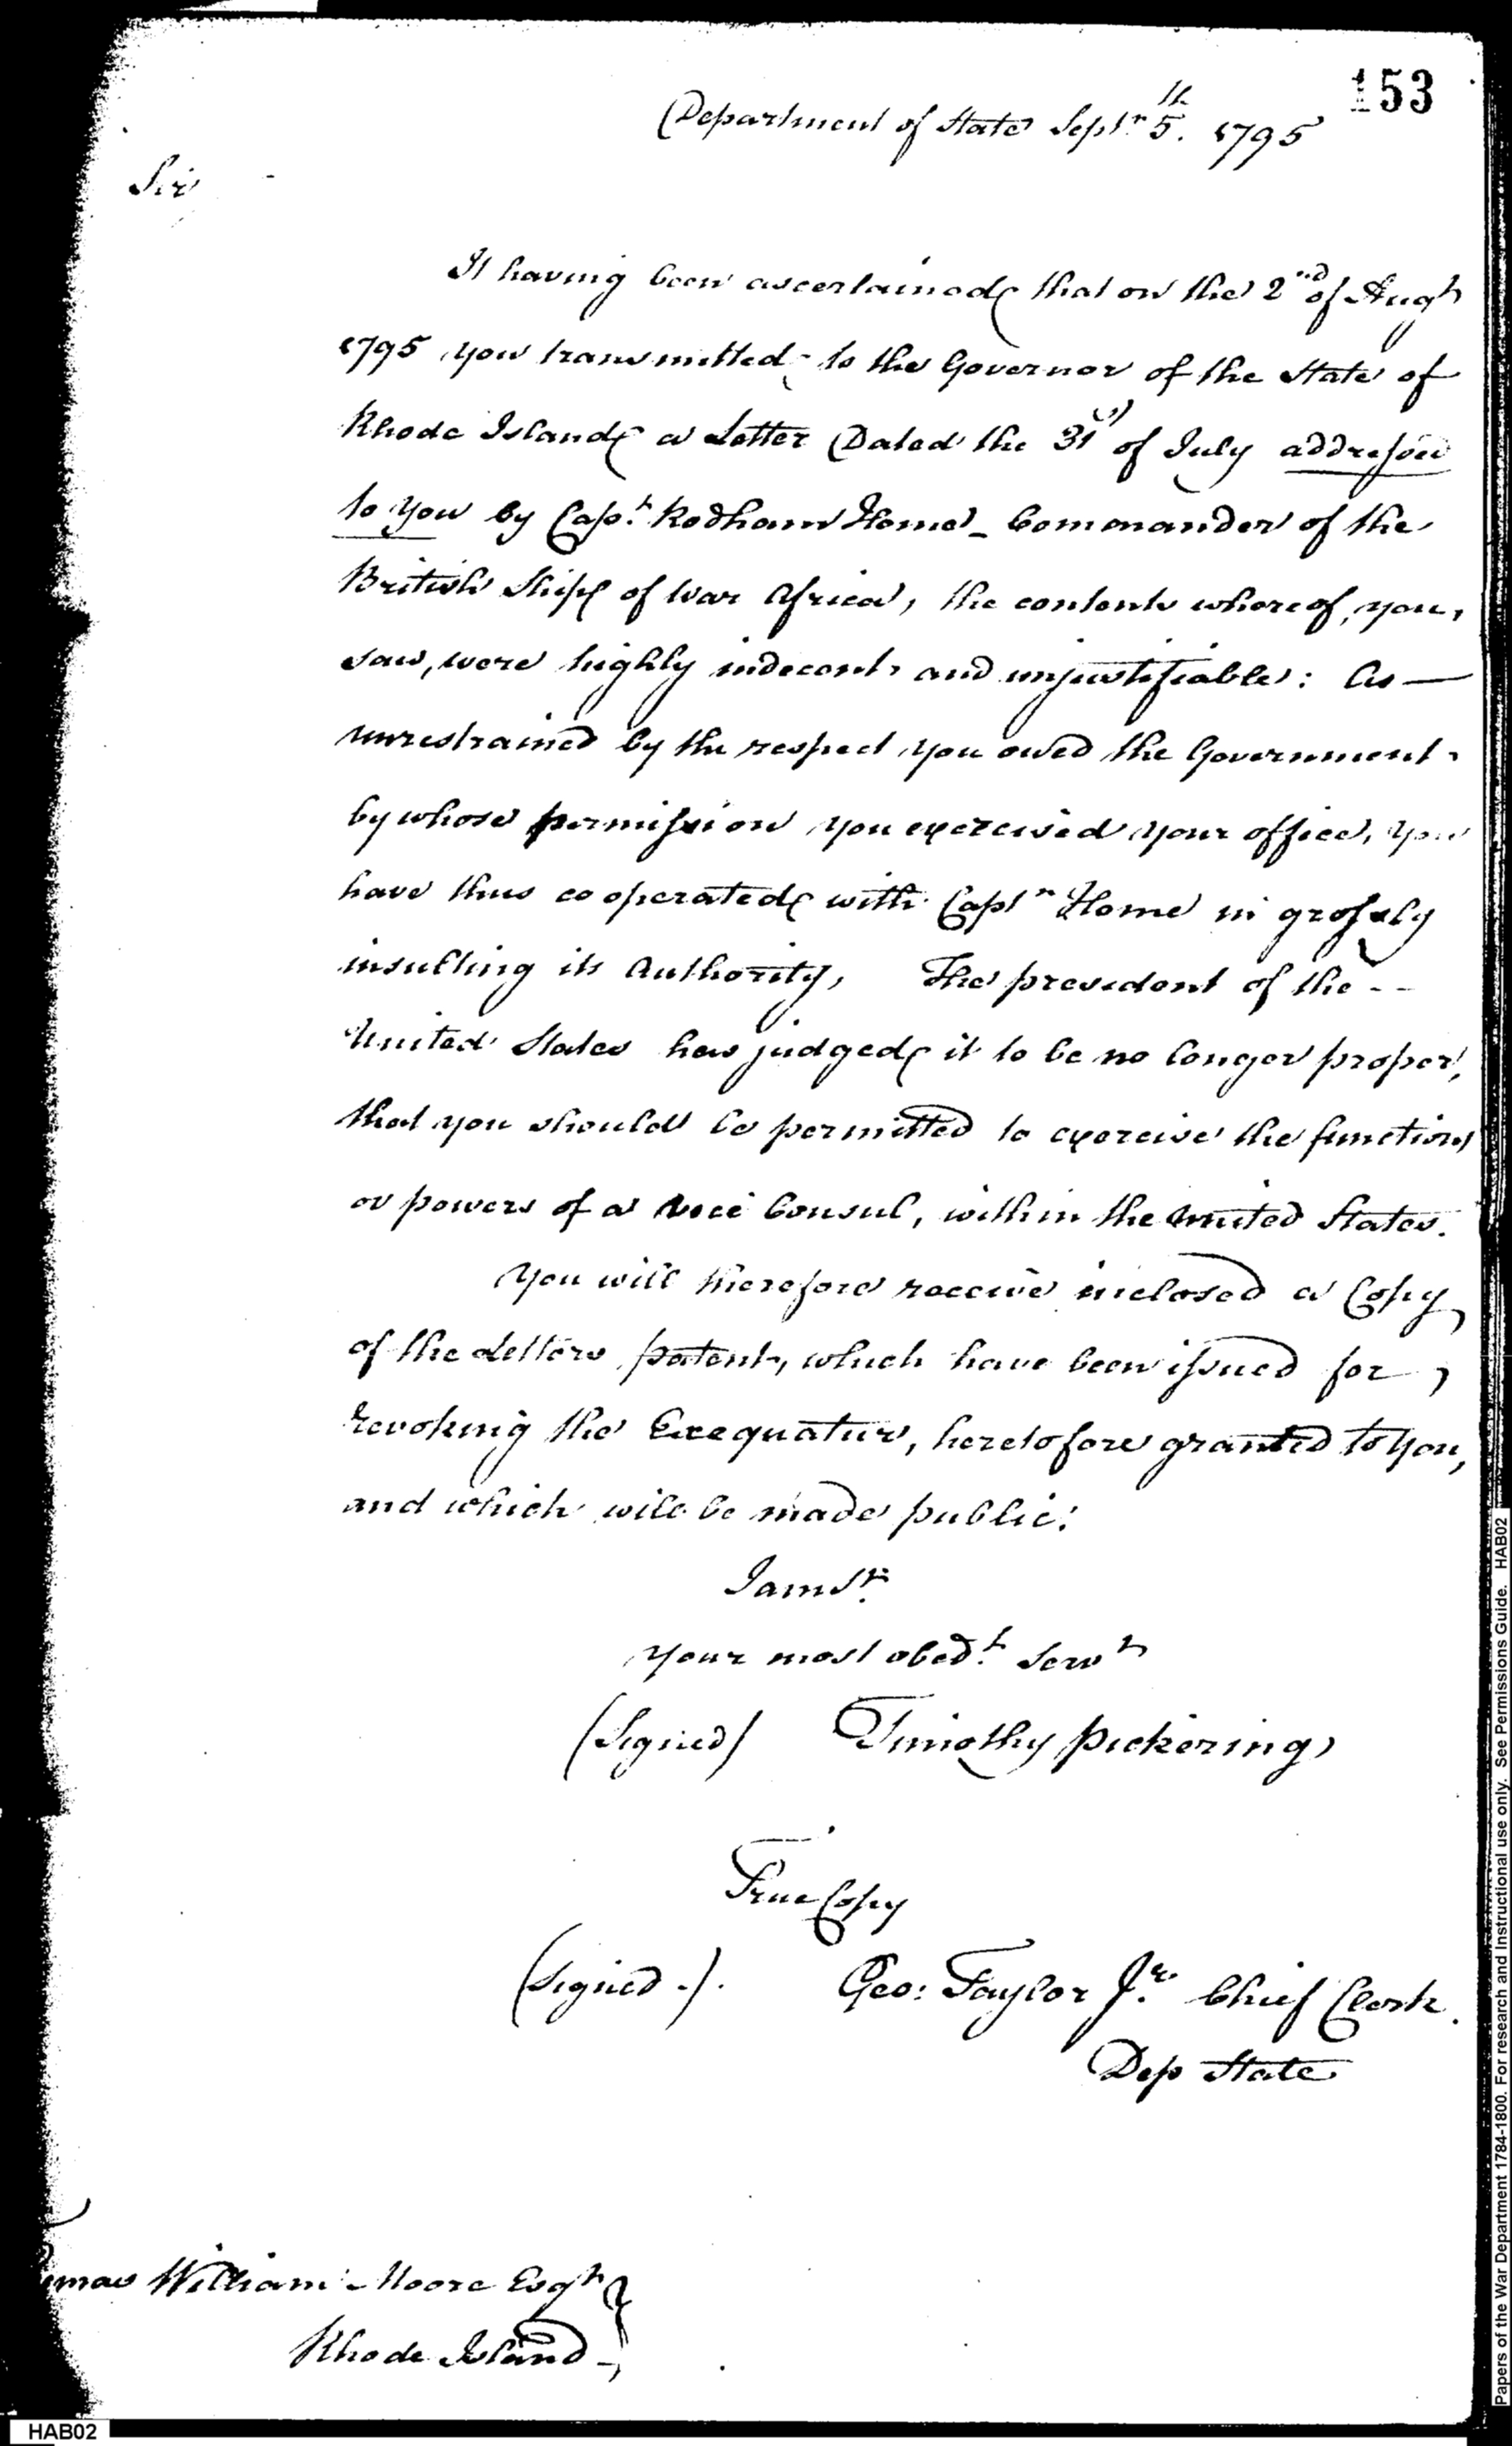 153
Department of State Septr. 5th. 1795
Sir
It having been ascertained that on the 2nd of Augt
1795 you transmitted to the Governor of the State of
Rhode Island a Letter Dated the 31st of July addressed
to you by Capt. Rodham Home - Commander of the
British Ship of War Africa, the contents whereof, you,
saw, were highly indecent and unjustifiable: As —
unrestrained by the respect you owed the Government
by whose permission you exercised your office, you
have thus cooperated with Captn Home in grossly
insulting its Authority, The president of the --
United States has judged it to be no longer proper,
that you should be permitted to exercise the functions
or powers of a Vice Consul, within the United States.
You will therefore receive inclosed a Copy
of the Letters patent, which have been issued for
revoking the Exequatur, heretofore granted to you,
and which will be made public.
I am Sr.
Your most obedt. Servt
(Signed) Timothy Pickering
True Copy
(Signed -). Geo: Taylor Jr. Chief Clerk.
Dep State
omas William Moore Esqr
Rhode Island -
HAB02
Papers of the War Department 1784-1800. For research and Instructional use only. See Permissions Guide. HAB02